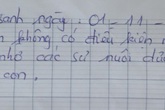 sanh ngày: 01-11
không có điều kiện
nhờ các sư nuôi dư
con.